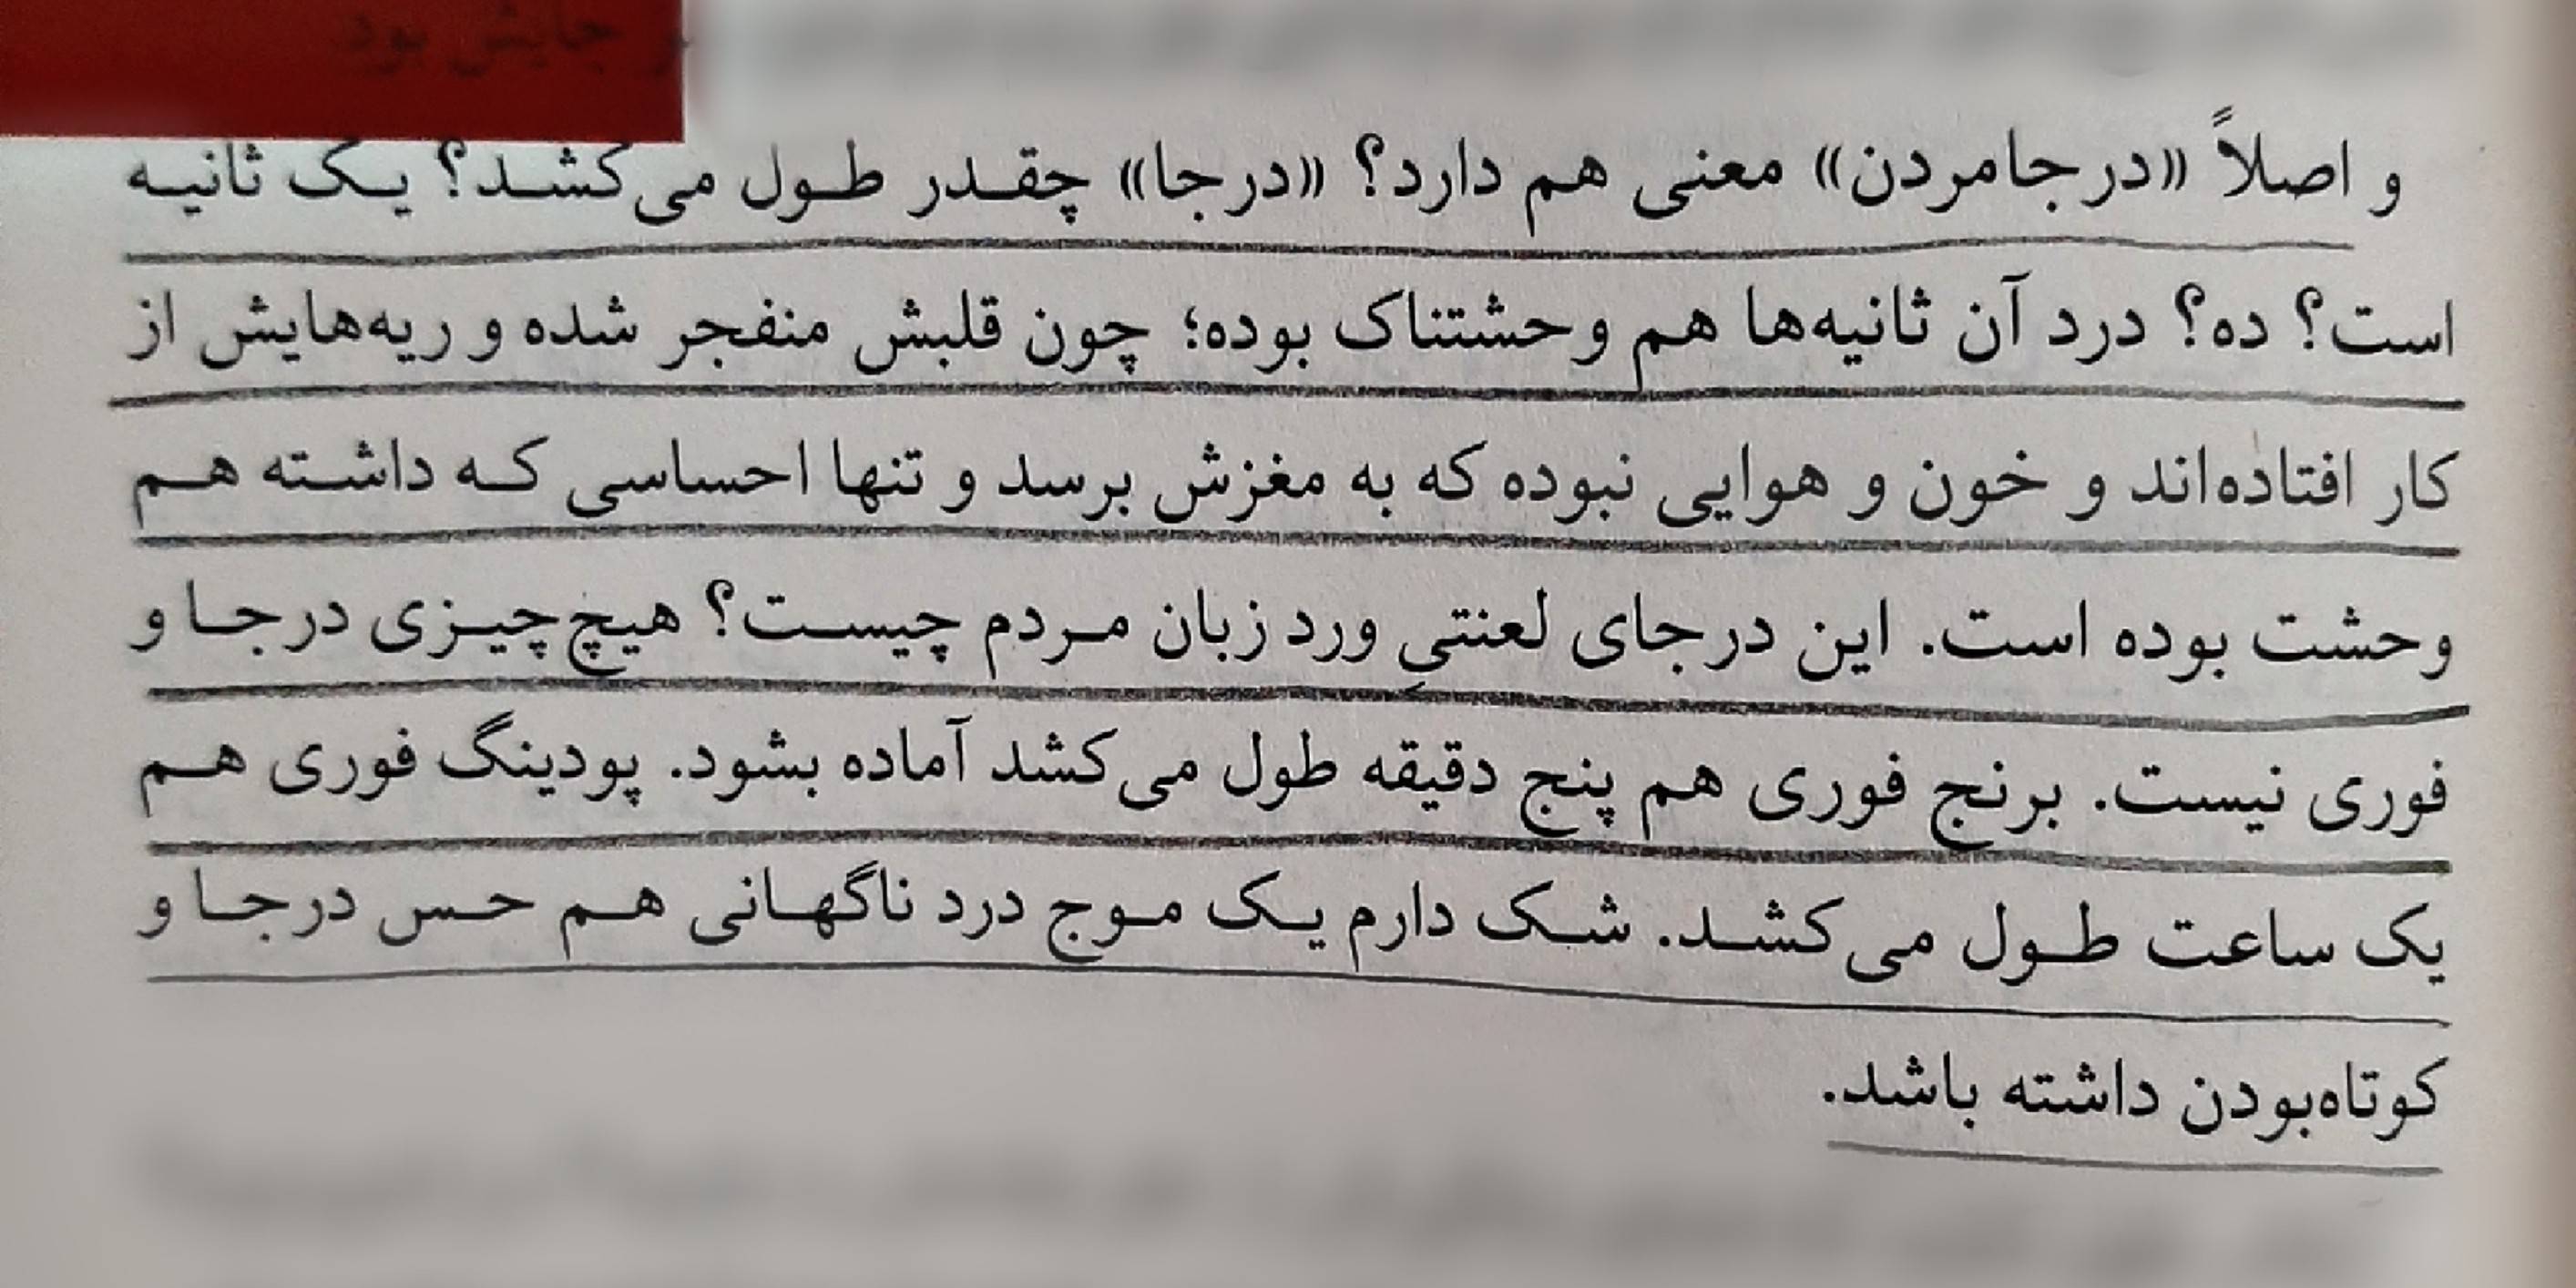 و اصلاً «درجامردن» معنی هم دارد؟ «درجا» چقدر طول می‌کشد؟ یک ثانیه
است؟ ده؟ درد آن ثانیه‌ها هم وحشتناک بوده؛ چون قلبش منفجر شده و ریه‌هایش از
کار افتاده‌اند و خون و هوایی نبوده که به مغزش برسد و تنها احساسی که داشته هم
وحشت بوده است. این درجای لعنتیِ ورد زبان مردم چیست؟ هیچ‌چیزی درجا و
فوری نیست. برنج فوری هم پنج دقیقه طول می‌کشد آماده بشود. پودینگ فوری هم
یک ساعت طول می‌کشد. شک دارم یک موج درد ناگهانی هم حس درجا و
کوتاه‌بودن داشته باشد.